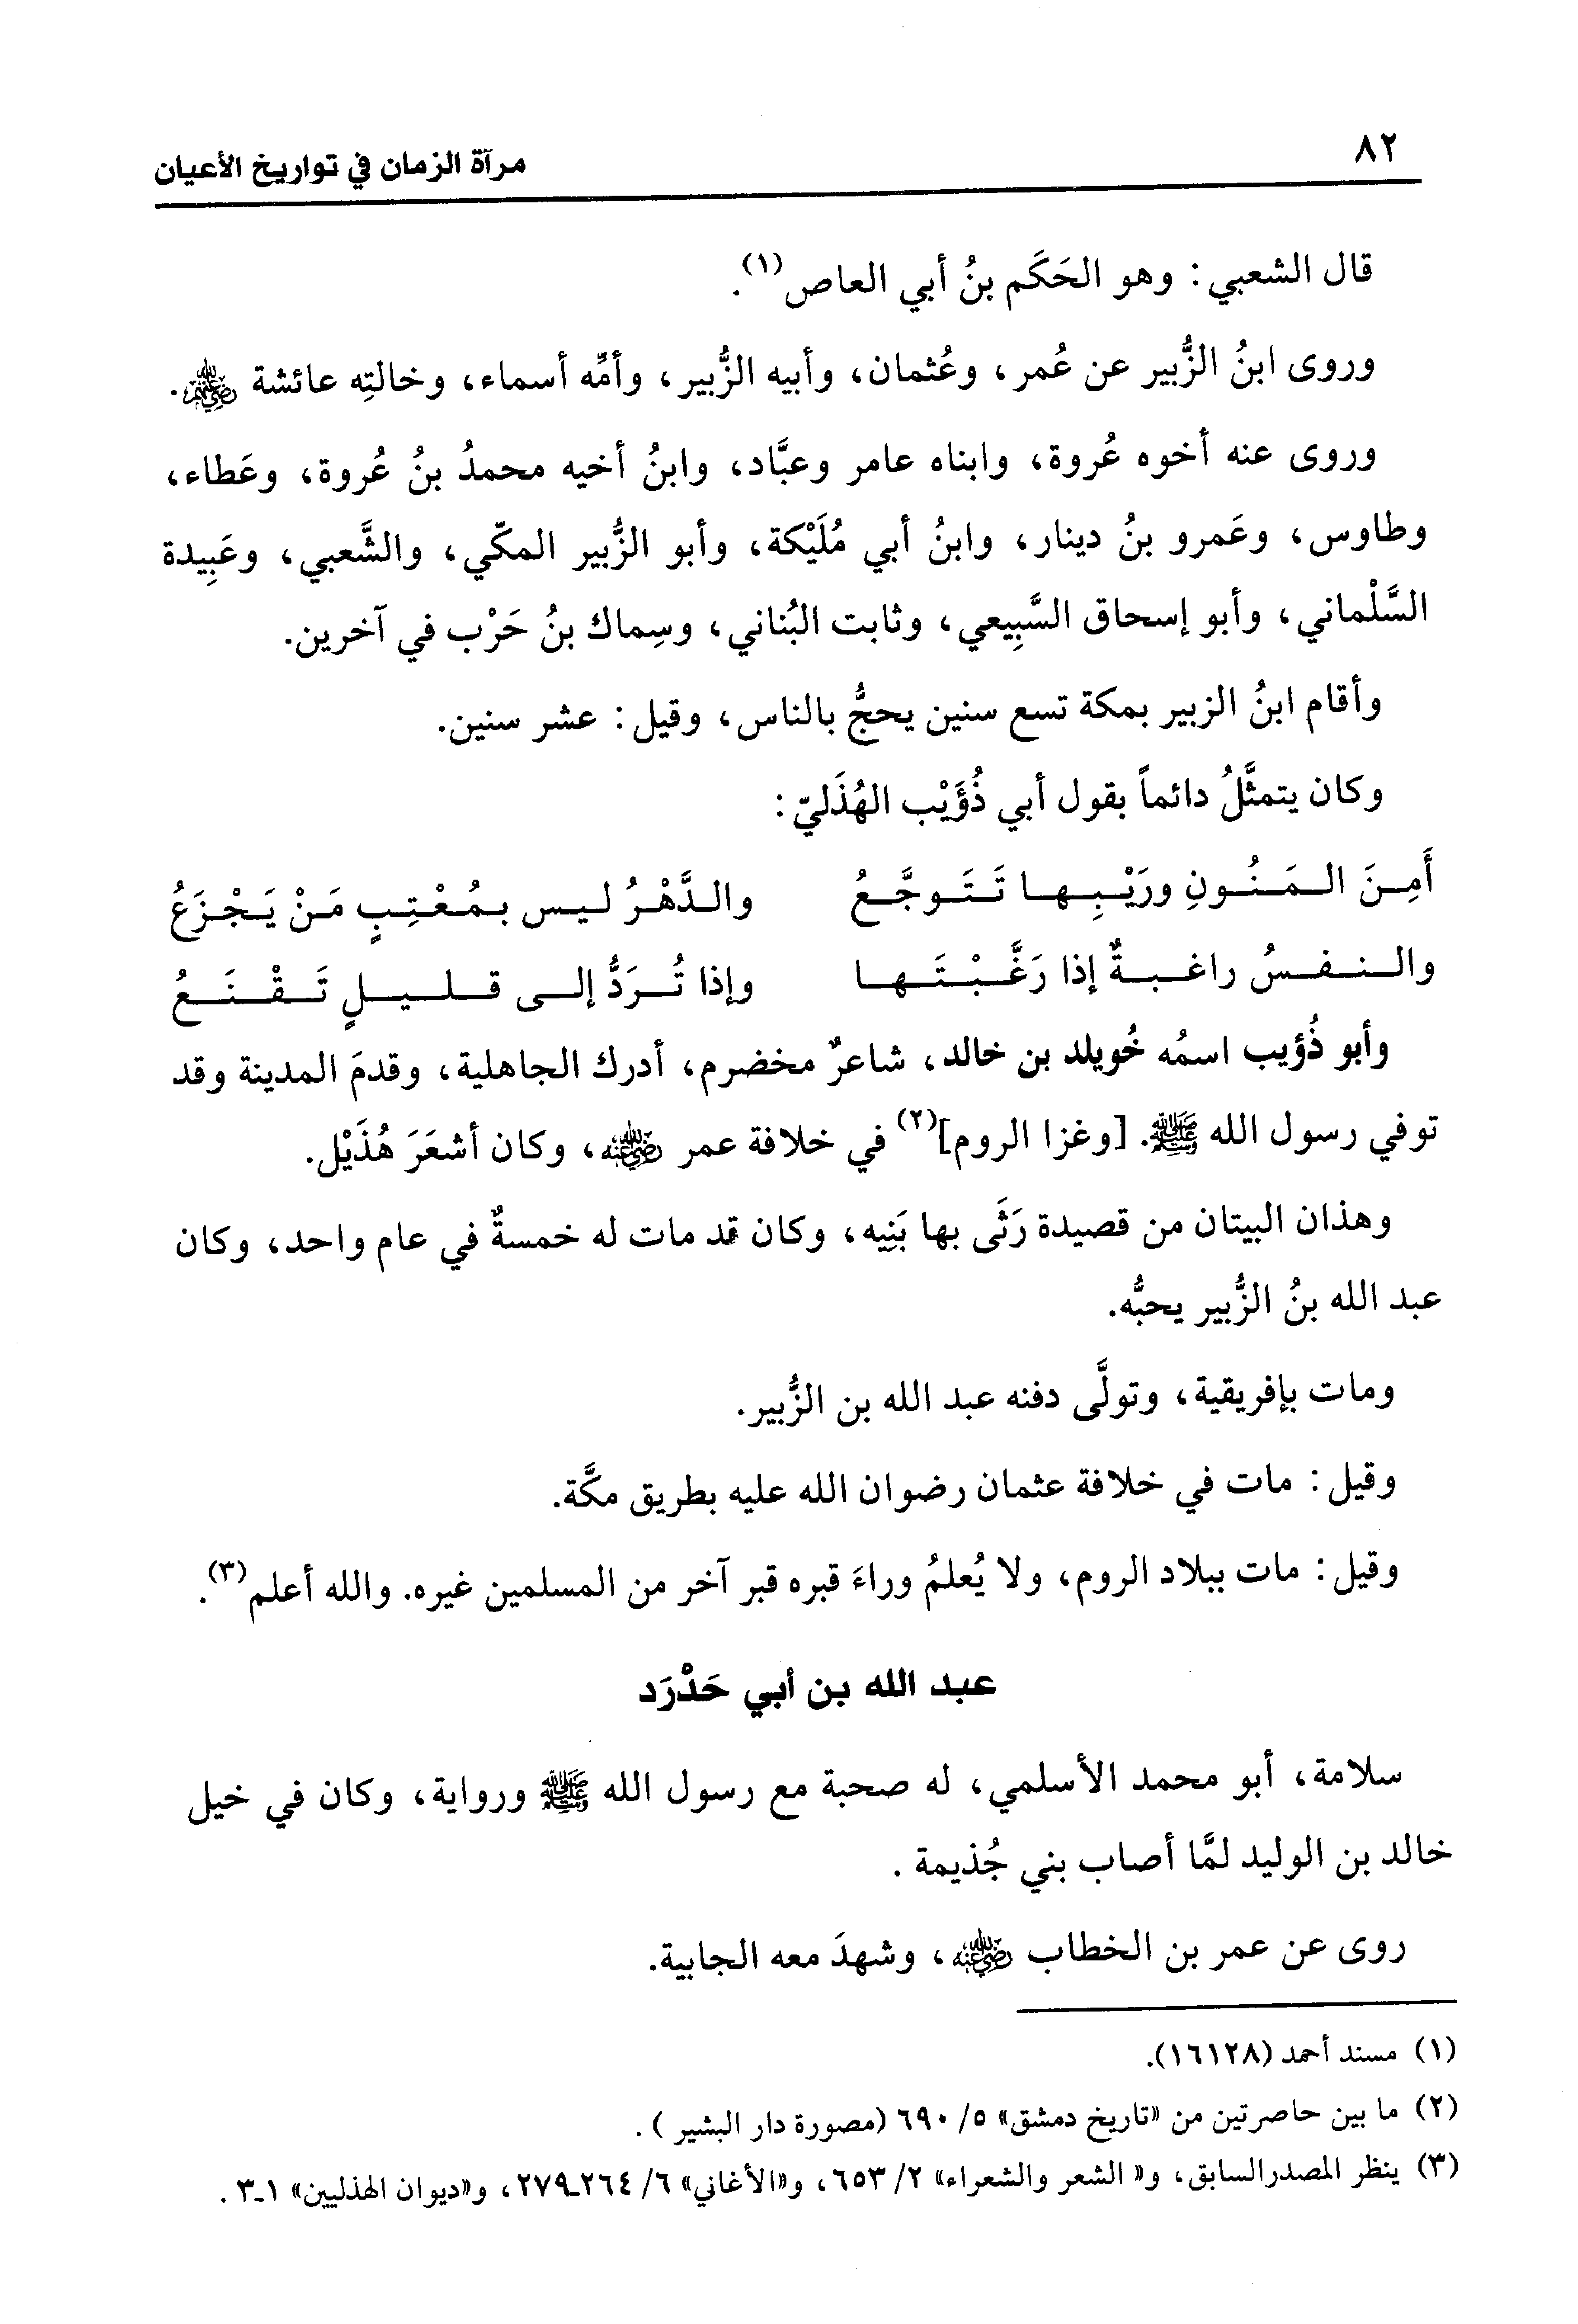 ٨٢
مرآة الزمان في تواريخ الأعيان
قال الشعبي: وهو الحَكَم بنُ أبي العاص(١).
وروى ابنُ الزُّبير عن عُمر، وعُثمان، وأبيه الزُّبير، وأمِّه أسماء، وخالتِه عائشة رضي الله عنهم.
وروى عنه أخوه عُروة، وابناه عامر وعبَّاد، وابنُ أخيه محمدُ بنُ عُروة، وعَطاء،
وطاوس، وعَمرو بنُ دينار، وابنُ أبي مُلَيْكة، وأبو الزُّبير المكّي، والشَّعبي، وعَبِيدة
السَّلْماني، وأبو إسحاق السَّبِيعي، وثابت البُناني، وسِماك بنُ حَرْب في آخرين.
وأقام ابنُ الزبير بمكة تسع سنين يحجُّ بالناس، وقيل: عشر سنين.
وكان يتمثَّلُ دائماً بقول أبي ذُؤَيْب الهُذَليّ:
أَمِـنَ الـمَـنُـونِ ورَيْـبِـهـا تَـتَـوجَّـعُ والـدَّهْـرُ لـيـس بـمُـعْـتِـبٍ مَـنْ يَـجْـزَعُ
والـنـفـسُ راغـبـةٌ إذا رَغَّـبْـتَـهـا وإذا تُـرَدُّ إلـى قـلـيـلٍ تَـقْـنَـعُ
وأبو ذُؤيب اسمُه خُويلد بن خالد، شاعرٌ مخضرم، أدرك الجاهلية، وقدمَ المدينة وقد
توفي رسول الله ﷺ. [وغزا الروم](٢) في خلافة عمر رضي الله عنه، وكان أشعَرَ هُذَيْل.
وهذان البيتان من قصيدة رَثَى بها بَنِيه، وكان قد مات له خمسةٌ في عام واحد، وكان
عبد الله بنُ الزُّبير يحبُّه.
ومات بإفريقية، وتولَّى دفنه عبد الله بن الزُّبير.
وقيل: مات في خلافة عثمان رضوان الله عليه بطريق مكَّة.
وقيل: مات ببلاد الروم، ولا يُعلمُ وراءَ قبره قبر آخر من المسلمين غيره. والله أعلم(٣).
عبد الله بن أبي حَدْرَد
سلامة، أبو محمد الأسلمي، له صحبة مع رسول الله ﷺ ورواية، وكان في خيل
خالد بن الوليد لمَّا أصاب بني جُذيمة .
روى عن عمر بن الخطاب رضي الله عنه، وشهدَ معه الجابية.
(١) مسند أحمد (١٦١٢٨).
(٢) ما بين حاصرتين من «تاريخ دمشق» ٥/ ٦٩٠ (مصورة دار البشير ) .
(٣) ينظر المصدر السابق، و« الشعر والشعراء» ٢/ ٦٥٣، و«الأغاني» ٦/ ٢٦٤ـ٢٧٩، و«ديوان الهذليين» ١ـ٣ .